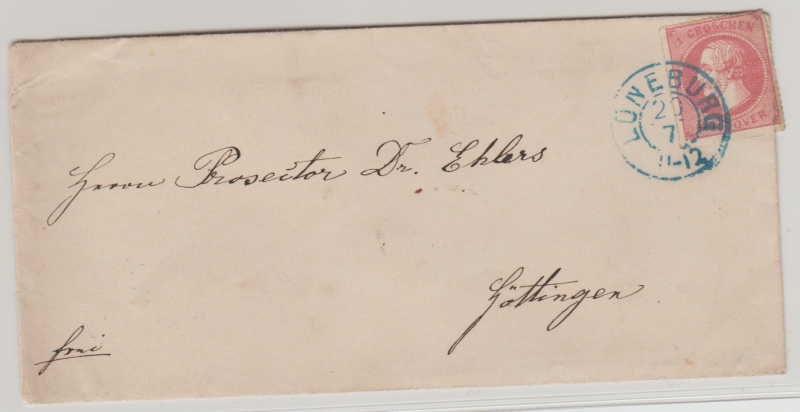 1 GROSCHEN
LÜNEBURG
7
11-12
Herrn Prosector Dr. Ehlers
Göttingen
frei